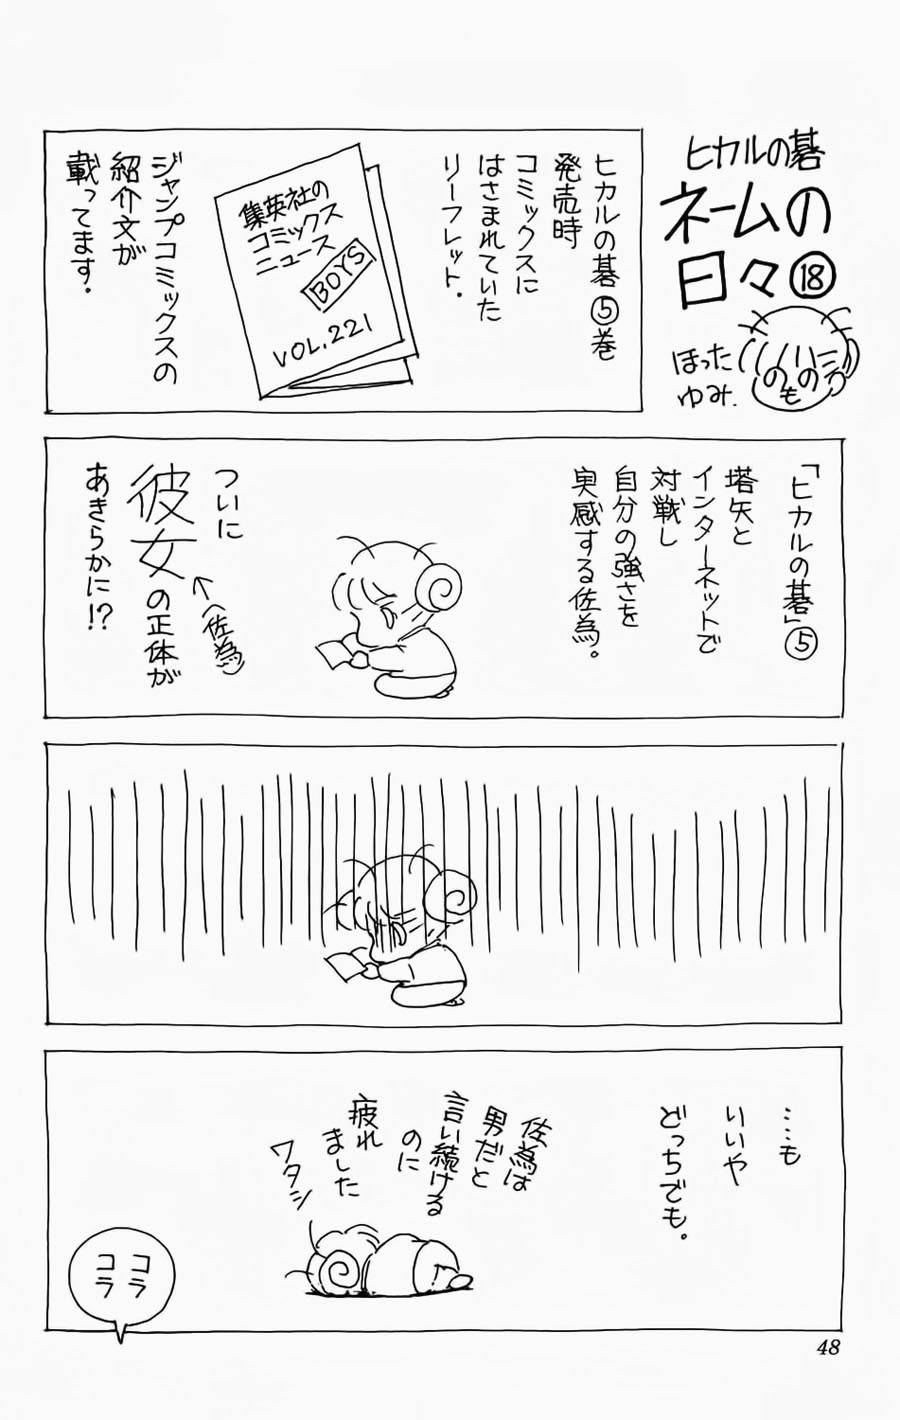 ヒカルの碁
ネームの
日々⑱
ほった
ゆみ.
のもの
ヒカルの碁⑤巻
発売時
コミックスに
はさまれていた
リーフレット.
集英社の
コミックス
ニュース
BOYS
VOL.221
ジャンプコミックスの
紹介文が
載ってます.
「ヒカルの碁」⑤
塔矢と
インターネットで
対戦し
自分の強さを
実感する佐為。
ついに
彼女の正体が
(佐為)
あきらかに!?
……も
いいや
どっちでも。
佐為は
男だと
言い続ける
のに
疲れ
ました
ワタシ
コラ
コラ
48